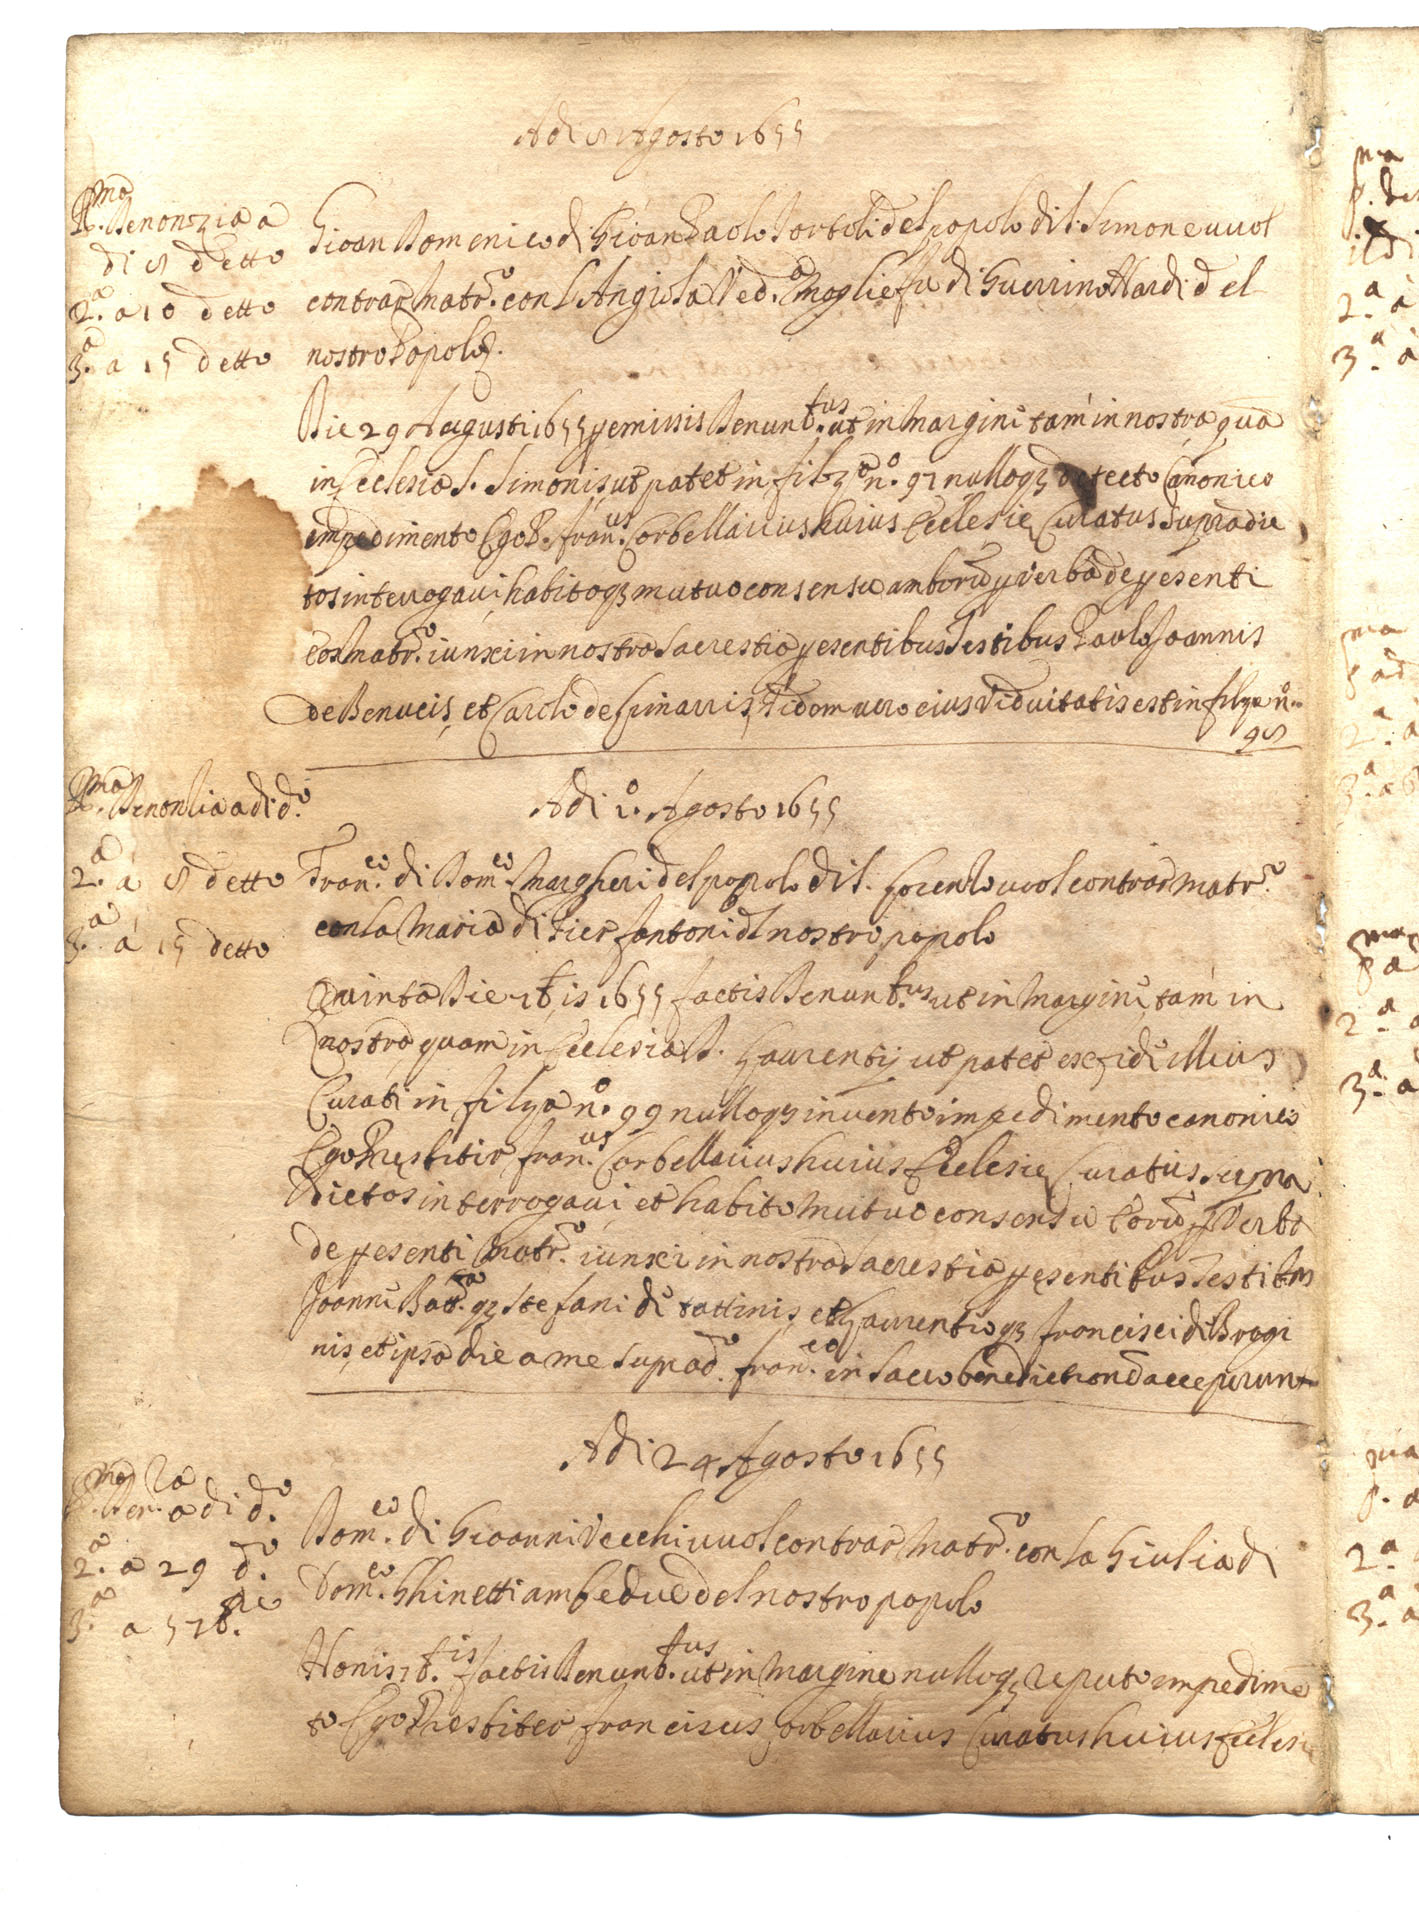 Adi 8 Agosto 1655
P.ma Denonzia a
di 8 detto
2.a a 10 detto
3.a a 15 detto
Gioan Domenico di Gioan Paolo del popolo di S. Simone vuol
contrar Matr.o con l'Angiola Ved.a moglie fu di Guerrino Nardi del
nostro Popolo.
Die 29 Augusti 1655 premissis Denunt.tus ut in Margine tam in nostra quã
in Ecclesia S. Simonis ut patet in filza n.o 97 nulloq3 detecto Canonico
impedimento Ego P. Fran.us Corbellarius huius Ecclesie Curatus Supradic
tos interrogavi, habitoq3 mutuo consensu amborũ p verba de presenti
eos Matr.o iunxi in nostra Sacrestia presentibus Testibus Paolo Joannis
de Benucis, et Carlo de Fides vero eius Viduitatis est in filza n.o
98
P.ma Denonzia adi d.o
2.a a 8 detto
3.a a 15 detto
Adi 1.o Agosto 1655
Fran.co di Dom.co Margheri del popolo di S. Lorenzo vuol contrar Matr.o
con la Maria di Pier Santoni del nostro popolo
Quinta Die 7bis 1655 factis Denunt.us ut in Margine, tam in
nostra quam in Ecclesia S. Laurentij ut patet ex fide illius
Curati in filza n.o 99 nulloq3 invento impedimento canonico
Ego Presbiter Fran.us Corbellarius huius Ecclesie Curatus supra
dictos interrogavi et habito Mutuo consensu eorũ p Verba
de presenti Matr.o iunxi in nostra Sacrestia presentibus Testibus
Joanne Batt.a q3 Stefani de tattinis, et Laurentio q3 Francisci di Bragi
nis, et ipsa die a me suprad.o Fran.co in Sacro benedictionẽ acceperunt
P.ma Den.za adi d.o
2.a a 29 d.o
3.a a 5 7b.re
Adi 24 Agosto 1655
Dom.co di Gioanni Vecchi vuol contrar Matr.o con la Giulia di
Dom.co Ghinetti ambedue del nostro popolo
Nonis 7b.is factis Denunt.us ut in Margine nulloq3 reperto impedimẽ
to Ego Presbiter Franciscus Corbellarius Curatus huius Ecclesie